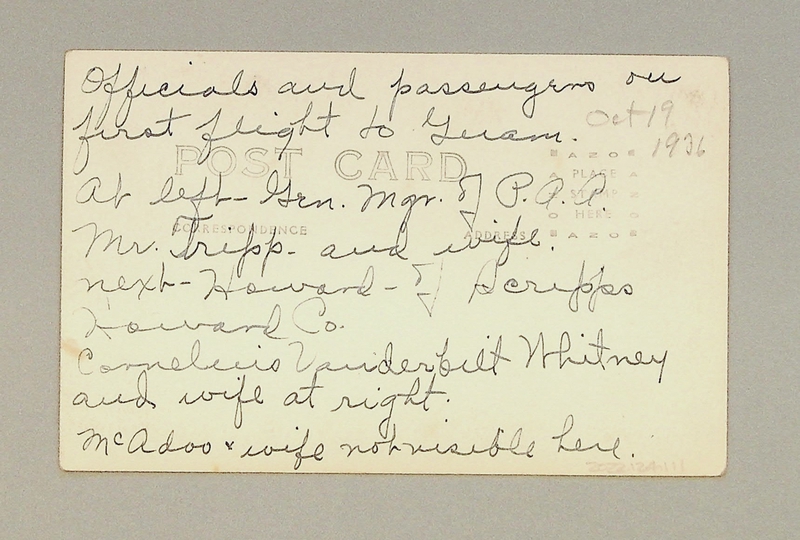 Officials and passengers on
first flight to Guam.
Oct 19
1936
POST CARD
At left - Gen. Mgr. of P.A.A.
Mr. Tripp - and wife.
next - Howard - of Scripps
Howard Co.
Cornelius Vanderbilt Whitney
and wife at right.
McAdoo & wife not visible here.
CORRESPONDENCE
ADDRESS
AZOE
PLACE
STAMP
HERE
AZOE